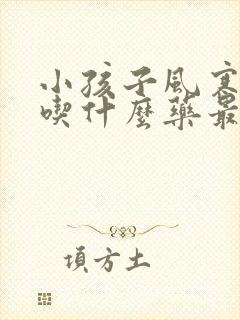 小孩子風寒
喫什麼藥最
項方土